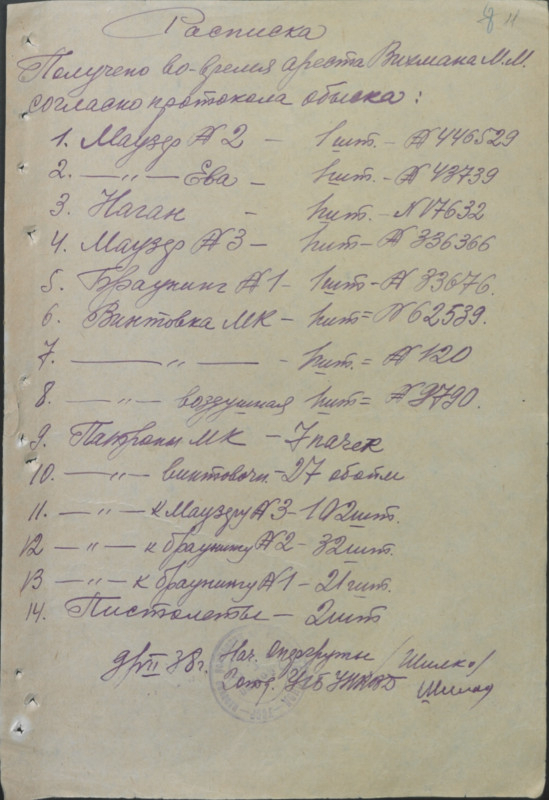 Расписка
Получено во-время ареста Вихмана М.М.
согласно протокола обыска:
1. Маузер № 2 - 1 шт. - № 446529
2. —„— Ева - 1 шт. - № 43739
3. Наган - 1 шт. - № 17632
4. Маузер № 3 - 1 шт - № 336366
5. Браунинг № 1 - 1 шт - № 83676.
6. Винтовка МК - 1 шт = № 62539.
7. —„— - 1 шт. = № 120
8 —„— воздушная 1 шт = № 9790.
9. Патроны МК - 7 пачек
10. —„— винтовочн. - 27 обойм
11. —„— к Маузеру № 3 - 102 шт.
12 —„— к браунингу № 2 - 32 шт.
13 —„— к браунингу № 1 - 21 шт.
14. Пистолеты - 2 шт
9/VII 38г. Нач. Опергруппы /Шилко/
УГБ УНКВД